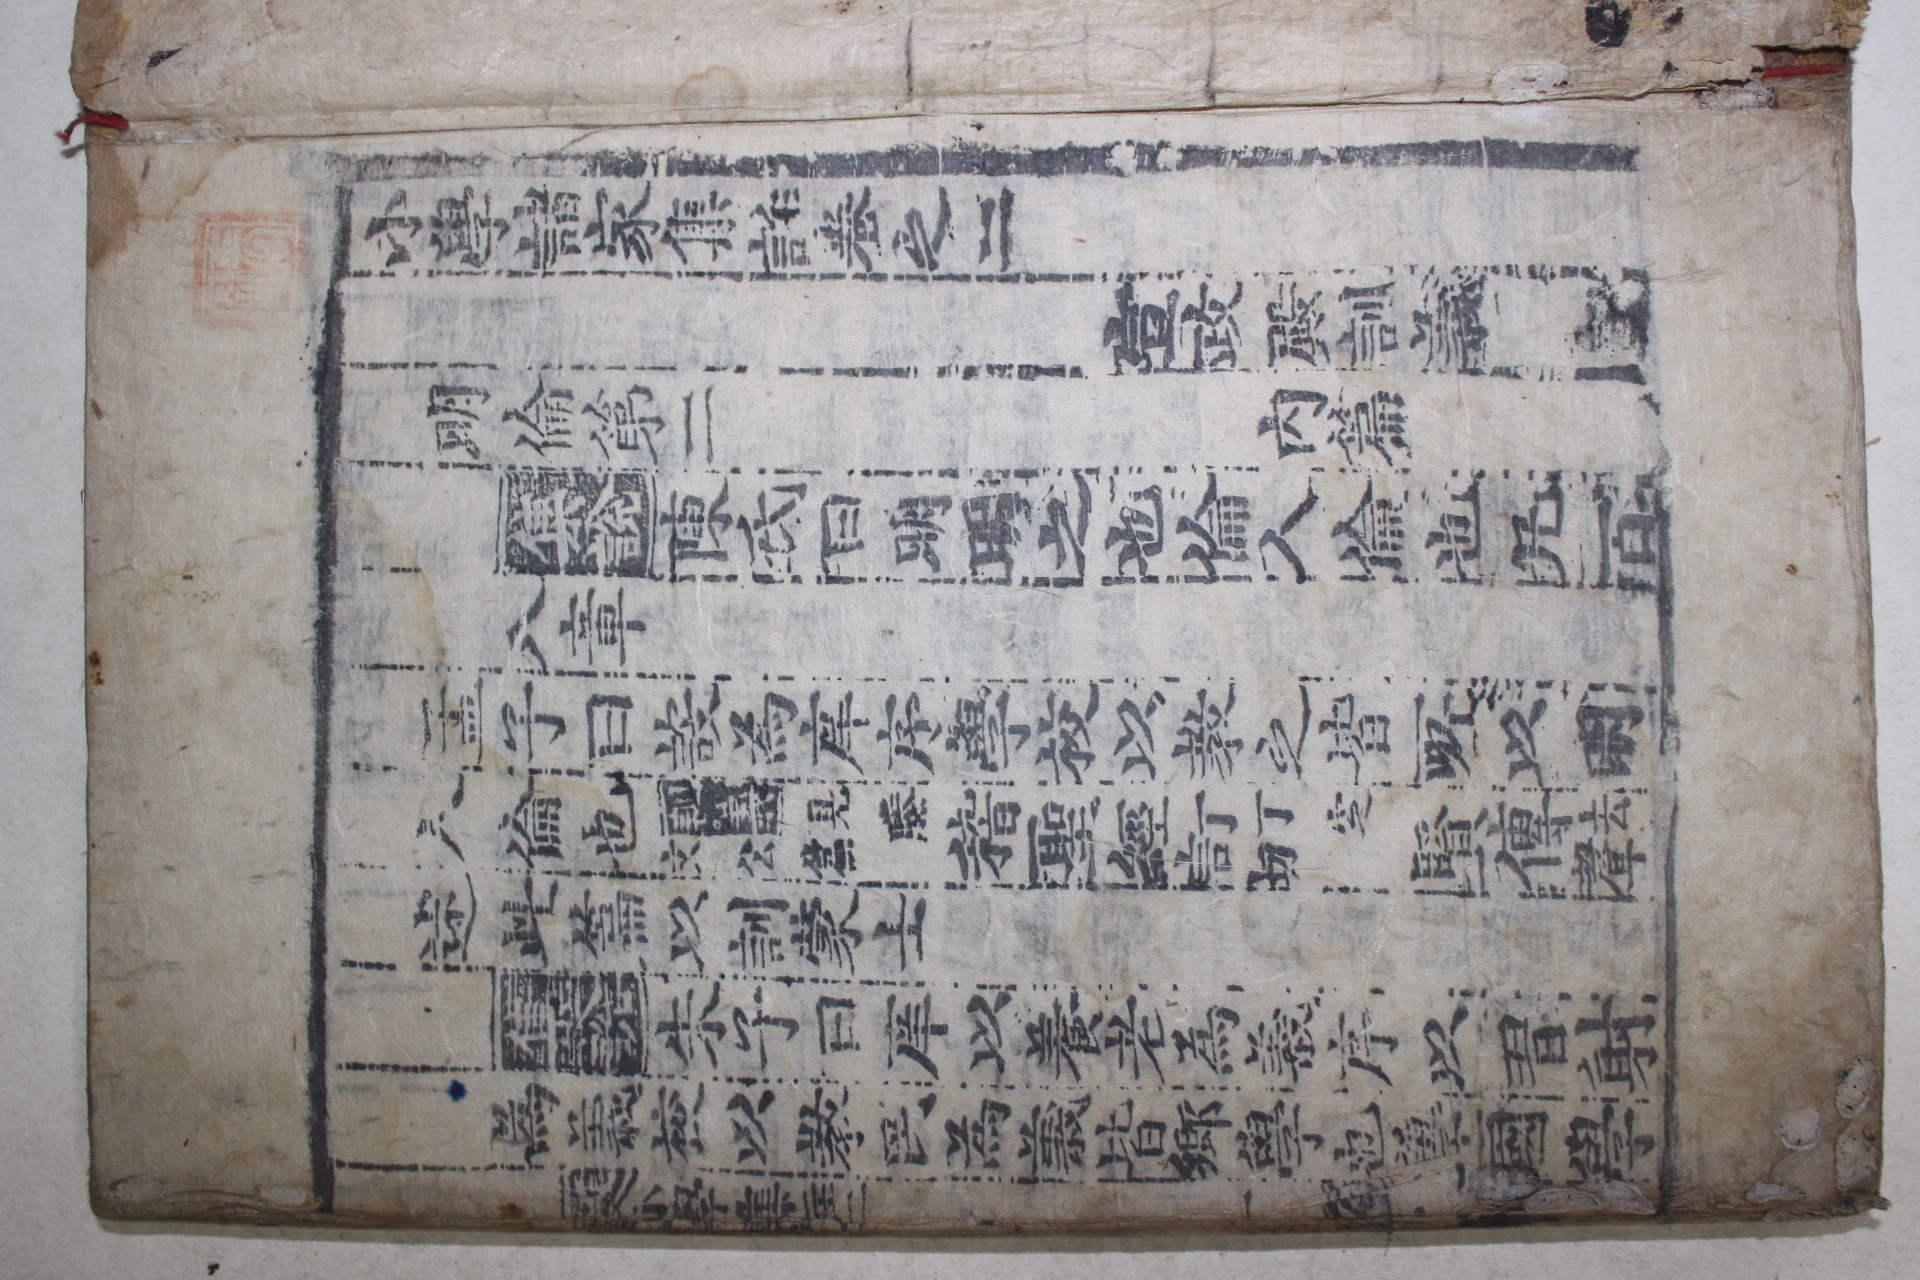 小學諸家集註卷之二
宣政殿訓義
明倫第二 內篇
集說陳氏曰明明之也倫人倫也凡一百
八章
孟子曰設為庠序學校以教之皆所以明
人倫也 見 文公篇 稽聖經訂丁定 賢傳去聲
述此篇以訓蒙士
集說朱子曰庠以養老為義序以習射
為義校以教民為義皆鄉學也學國學
小學集註二